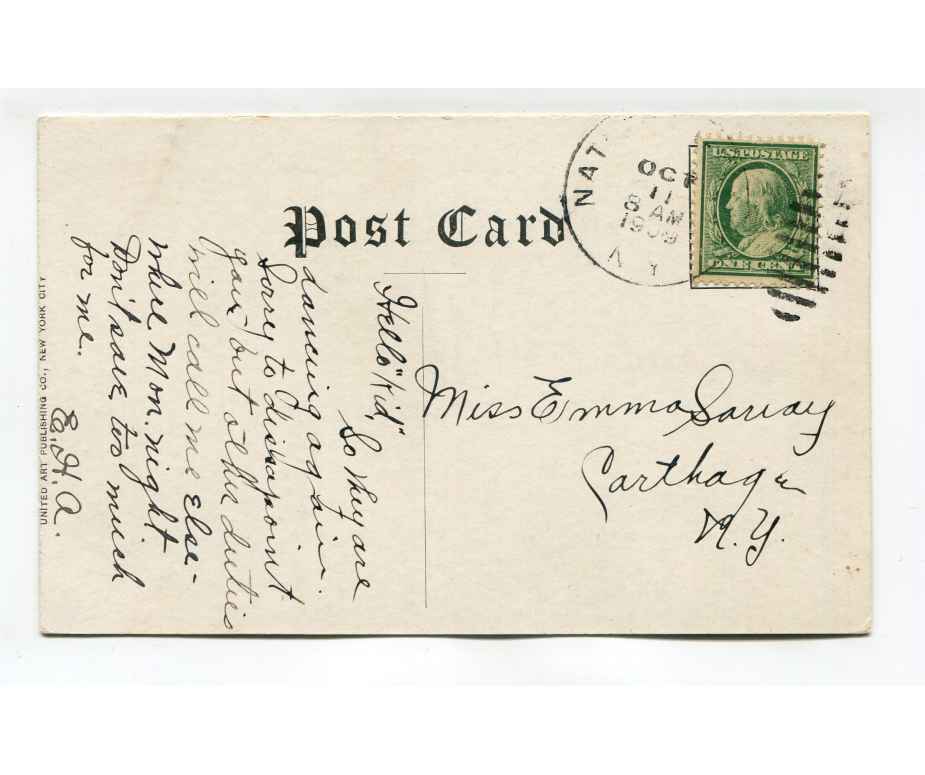 Post Card
NAT
OCT
11
8 AM
1909
N.Y.
U.S. POSTAGE
ONE CENT
Hello "Kid,"
So they are
dancing again.
Sorry to dissapoint
you but other duties
will call me else-
where Mon. night
Don't care too much
for me.
E.H.A.
Miss Emma
Carthage
N.Y.
UNITED ART PUBLISHING CO., NEW YORK CITY